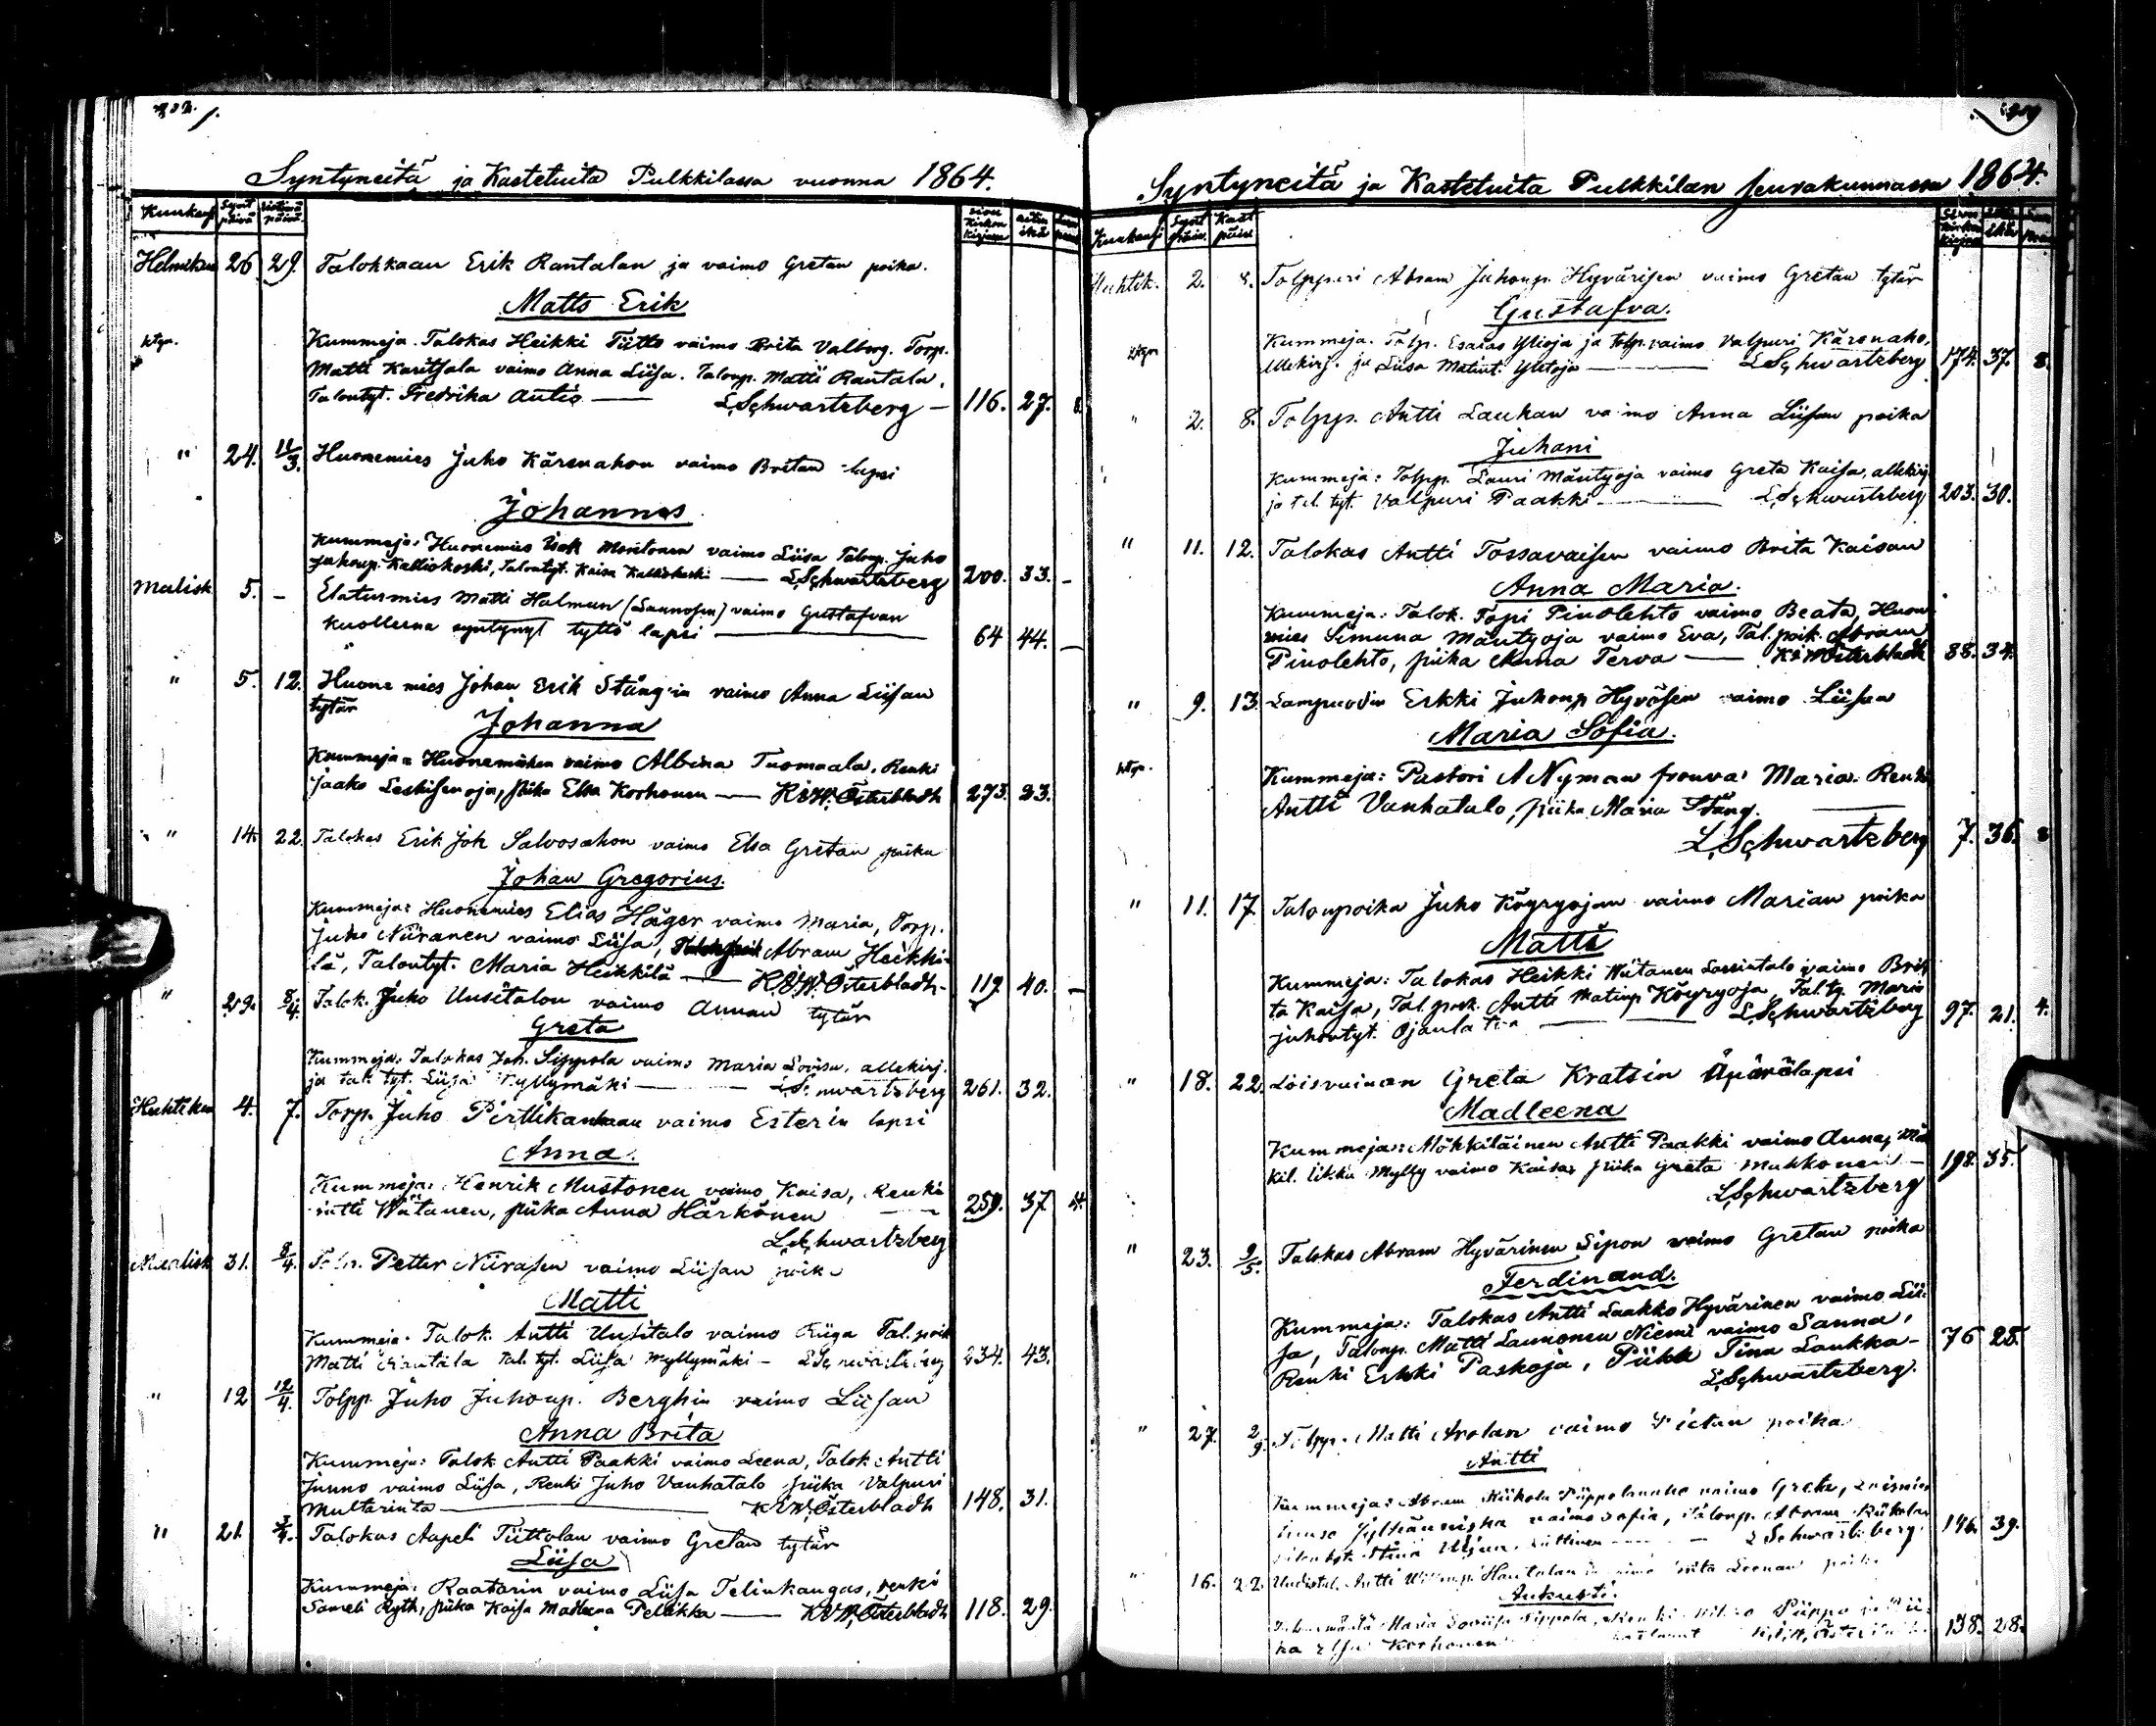 Syntyneitä ja Kastetuita Pulkkilassa vuonna 1864.
Kuukausi Synt päivä Ristimä päivä sivu Kirkon kirjassa äitin ikä
Helmikuu 26 29. Talokkaan Erik Rantalan ja vaimo Gretan poika.
Matts Erik
Kummeja. Talokas Heikki Tiitto vaimo Brita Valberg. Torp.
Matti Karitsala vaimo Anna Liisa. Taloup. Matti Rantala,
Talontyt. Fredrika Antio — L.Schwartzberg — 116. 27. 8.
" 24. 11/3. Huonemies Juho Kärenahon vaimo Britan lapsi
Johannes
Kummeja: Huonemies Isak Montonen vaimo Liisa Taloup. Juho
Juhonp. Kalliokoski, Talontyt. Kaisa Kalliokoski — L.Schwartzberg 200. 33. —
Malisk 5. — Elatusmies Matti Halmeen (Launosen) vaimo Gustafvan
kuollerna syntynyt tyttö lapsi — 64 44. —
" 5. 12. Huone mies Johan Erik Stång'in vaimo Anna Liisan
tytär
Johanna
Kummeja: Huonemiehen vaimo Albina Tuomaala. Renki
Jaako Leskisenoja, piika Elsa Korhonen — K.V.W.Österbladh 273. 23.
" 14. 22. Talokas Erik Joh Salvosahon vaimo Elsa Gretan poika
Johan Gregorius.
Kummeja: Huonemies Elias Häger vaimo Maria, Torp.
Juho Niiranen vaimo Liisa, Abram Heikki-
lä, Talontyt. Maria Heikkilä — K.V.W.Österbladh — 119. 40. —
" 29. 8/4. Talok. Juho Uusitalon vaimo Annan tytär
Greta
Kummeja: Talokas Joh. Sippola vaimo Maria Lovisa, allekirj.
ja tal. tyt. Liisa Myllymäki — L.Schwartzberg 261. 32.
Huhtikuu 4. 7. Torp. Juho Pirttikankaan vaimo Esterin lapsi
Anna.
Kummeja: Henrik Mustonen vaimo Kaisa, Renki
Antti Wätänen, piika Anna Härkönen — 259. 37. 4.
L.Schwartzberg
Maalisk 31. 8/4. Tolp. Petter Niirasen vaimo Liisan poika
Matti
Kummeja: Talok. Antti Uusitalo vaimo Riiga Tal. poik
Matti Rantala Tal. tyt. Liisa Myllymäki — L.Schwartzberg 234. 43.
" 12 12/4. Tolpp. Juho Juhonp. Berghin vaimo Liisan
Anna Brita
Kummeja: Talok Antti Paakki vaimo Leena, Talok Antti
Junno vaimo Liisa, Renki Juho Vanhatalo piika Valpuri
Multarinta — K.V.W.Österbladh 148. 31.
" 21. 3/4. Talokas Aapeli Tiittolan vaimo Gretan tytär
Liisa
Kummeja: Raatarin vaimo Liisa Telinkangas, renki
Sameli Ryth, piika Kaisa Madleena Pellikka — K.V.W.Österbladh 118. 29.
Syntyneitä ja Kastetuita Pulkkilan seurakunnassa 1864.
Kuukausi Synt päiv. Kast päivä Sivu kirkon kirjassa ikä
Huhtik. 2. 8. Tolppari Abram Juhonp. Hyvärisen vaimo Gretan tytär
Gustafva.
Kummeja. Tolp. Esaias Ylioja ja tolp. vaimo Valpuri Käronaho,
Allekirj. ja Liisa Matint. Ylioja — L.Schwartzberg 174. 37. 8.
" 2. 8. Tolpp. Antti Laukan vaimo Anna Liisan poika
Juhani
Kummeja: Tolpp. Lauri Mäntyoja vaimo Greta Kaisa, allekirj
ja tal. tyt. Valpuri Paakki — L.Schwartzberg 203. 30.
" 11. 12. Talokas Antti Tossavaisen vaimo Brita Kaisan
Anna Maria.
Kummeja: Talok. Topi Pinolehto vaimo Beata, Huone
mies Simuna Mäntyoja vaimo Eva, Tal. poik. Abram
Pinolehto, piika Anna Terva — K.V.W.Österbladh 88. 34.
" 9. 13. Lampuodin Erkki Juhonp Hyvösen vaimo Liisan
Maria Sofia.
Kummeja: Pastori A Nyman frouva Maria. Renki
Antti Vanhatalo, piika Maria Stång. —
L.Schwartzberg 7. 36. 8
" 11. 17. Talonpoika Juho Köyryojan vaimo Marian poika
Matti
Kummeja: Talokas Heikki Wätanen Lassintalo vaimo Bri-
ta Kaisa, Tal. poik. Antti Matinp Köyryoja, Tal. ty. Maria
Juhontyt. Ojanlatva — L.Schwartzberg 97. 21. 4.
" 18. 22. Loisvaimon Greta Kratsin Äpärälapsi
Madleena
Kummeja: Mökkiläinen Antti Paakki vaimo Anna, Mö
kil. Iikka Mylly vaimo Kaisa, piika Greta Muhkonen — 198. 35.
L.Schwartzberg
" 23. 9/5. Talokas Abram Hyvärinen Sipon vaimo Gretan poika
Ferdinand.
Kummeja: Talokas Antti Laakko Hyvärinen vaimo Lii-
sa, Taloup. Matti Launonen Niemi vaimo Sanna,
Renki Erkki Paskoja, Piikk Tina Laukka- 76 25.
L.Schwartzberg.
" 27. 2/9. Tolpp. Matti Arolan vaimo poika
Antti
Kummeja: Abram Piippolanaho vaimo Greta,
vaimo Sofia, Taloup. Abram
Stina — L Schwartzberg. 146. 39.
" 16. 22. Uudistal. Antti vaimo Brita Leenan poika
Aukusti.
Maria Loviisa Sippola, Renki Piippo ja Pii-
ka Elsa Korhonen 138. 28.